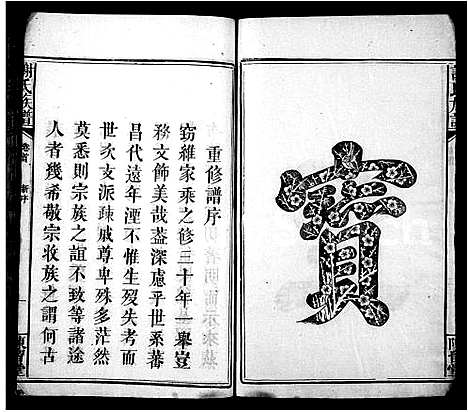 寶
謝氏族譜
卷首
新序
重修譜序
竊維家乘之修三十年一舉豈
務文飾美哉葢深慮乎世系蕃
昌代遠年湮不惟生歿失考而
世次支派疎戚尊卑殊多茫然
莫悉則宗族之誼不致等諸途
人者幾希敬宗收族之謂何古